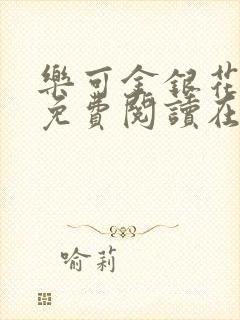 樂可金銀花
免費閱讀在
喻莉